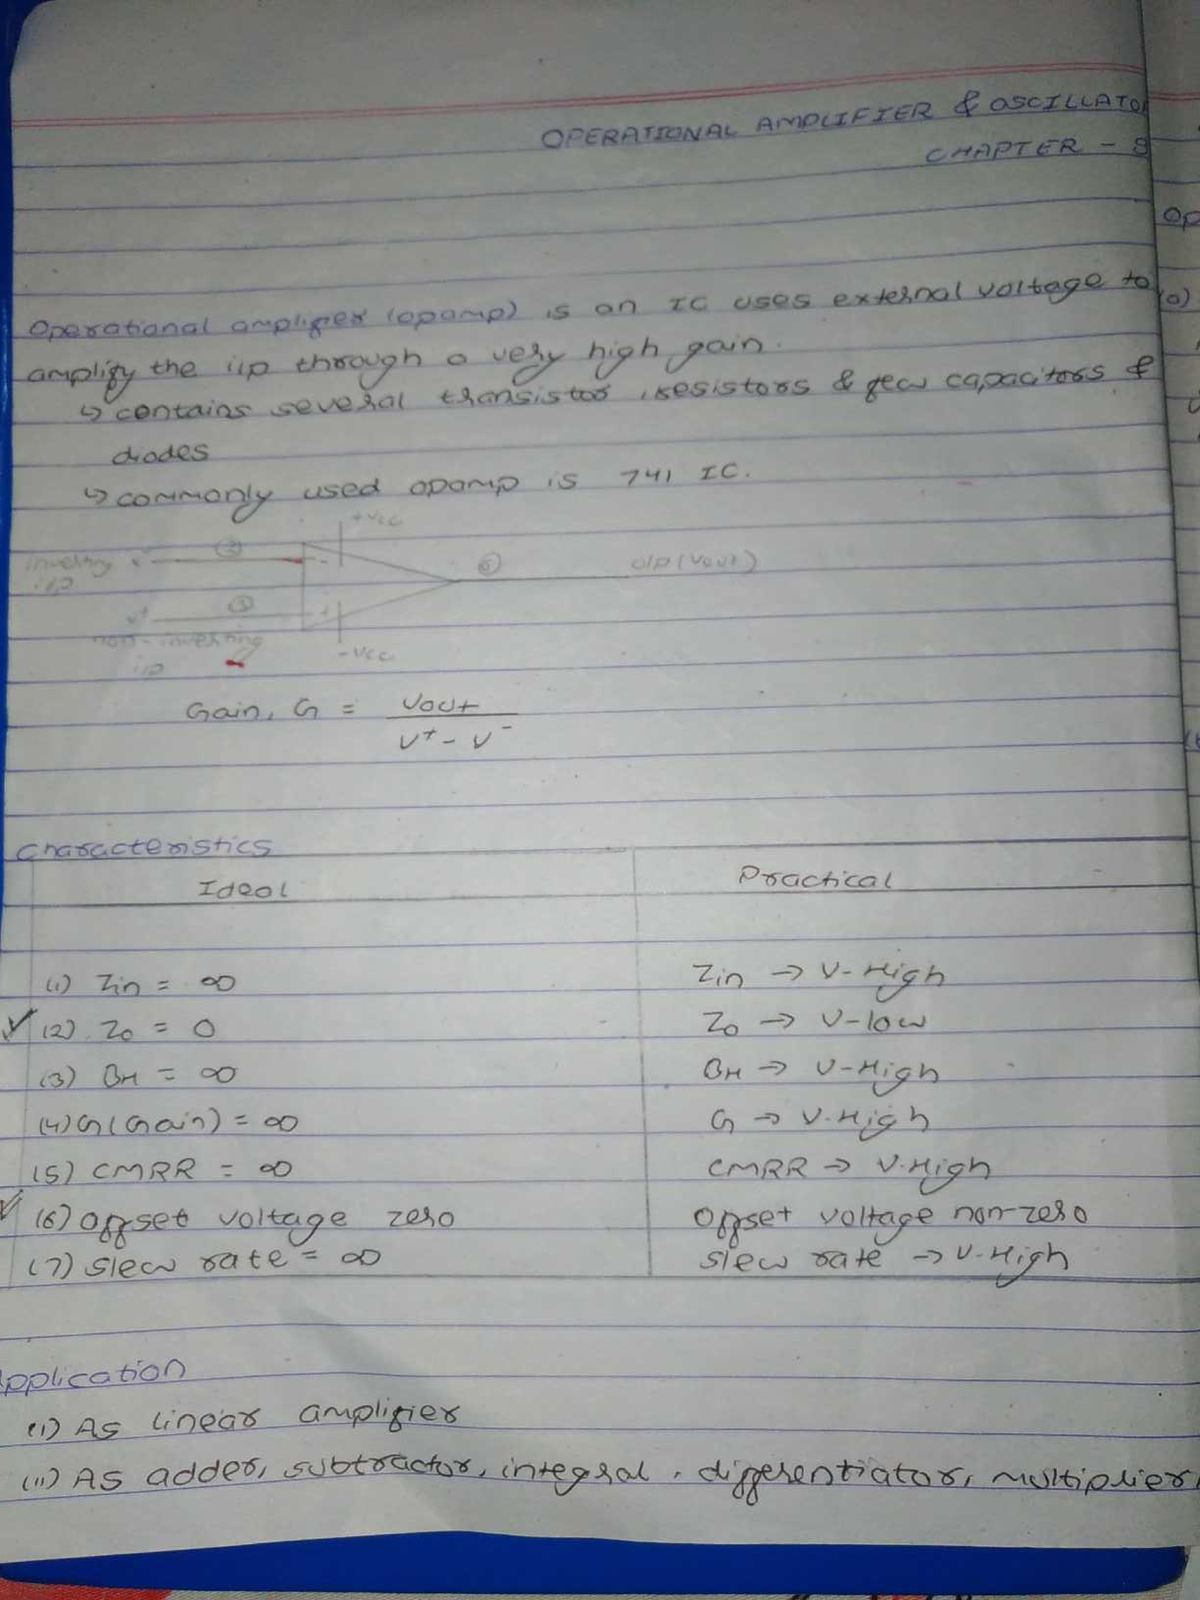 OPERATIONAL AMPLIFIER & OSCILLATO
CHAPTER -
Operational amplifier (opamp) is an IC uses external voltage to
amplify the i/p through a very high gain.
↳ contains several transistor, resistors & few capacitors &
diodes
↳ commonly used opamp is 741 IC.
+Vcc
inverting V- (2) -
i/p
(6) o/p (Vout)
V+ (3) +
non-inverting
i/p
-Vcc
Gain, G = Vout / V+ - V-
Characteristics
Ideal Practical
(1) Zin = ∞ Zin → V-High
(2) Zo = 0 Zo → V-low
(3) BH = ∞ BH → V-High
(4) G (Gain) = ∞ G → V.High
(5) CMRR = ∞ CMRR → V.High
(6) offset voltage zero Offset voltage non-zero
(7) slew rate = ∞ slew rate → V.High
pplication
(i) As linear amplifier
(ii) As adder, subtractor, integral, differentiator, multiplier,
Op
(a)